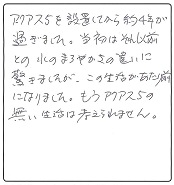 アクアス5を設置してから約4年が
過ぎました。当初はそれ以前
との水のまろやかさの違いに
驚きましたが、この生活があたり前
になりました。もうアクアス5の
無い生活は考えられません。